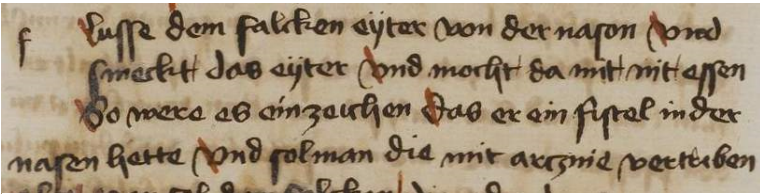 f lusse dem falcken eyter von der nason vnd
smeckt das eyter vnd mocht da mit nit essen
So were es ein zeichen das er ein fistel in der
nasen hette vnd sol man die mit arcznie vertriben